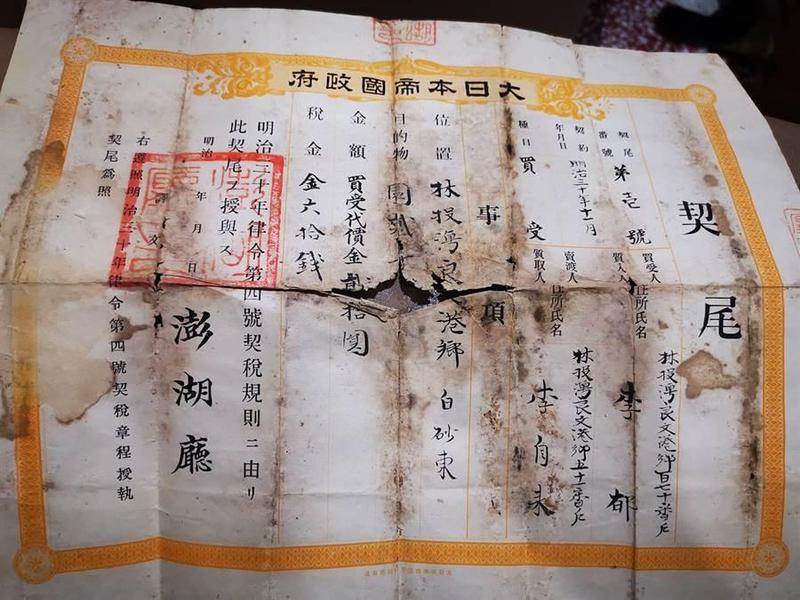 大日本帝國政府
契尾
契尾番號 第壱號
契約年月日 明治三十年十一月
種目 買受
買受人
質入人
住所氏名
林投灣良文港鄉百七十番戶
李郁
賣渡人
質取人
住所氏名
林投灣良文港鄉五十一番戶
李自未
事項
位置 林投灣良 港鄉白砂東
目的物 園貳
金額 買受代價金貳拾圓
稅金 金六拾錢
明治三十年律令第四號契稅規則ニ由リ
此契尾ヲ授與ス
明治 年 月 日
澎湖廳
譯文
右遵照明治三十年律令第四號契稅章程授執
契尾爲照